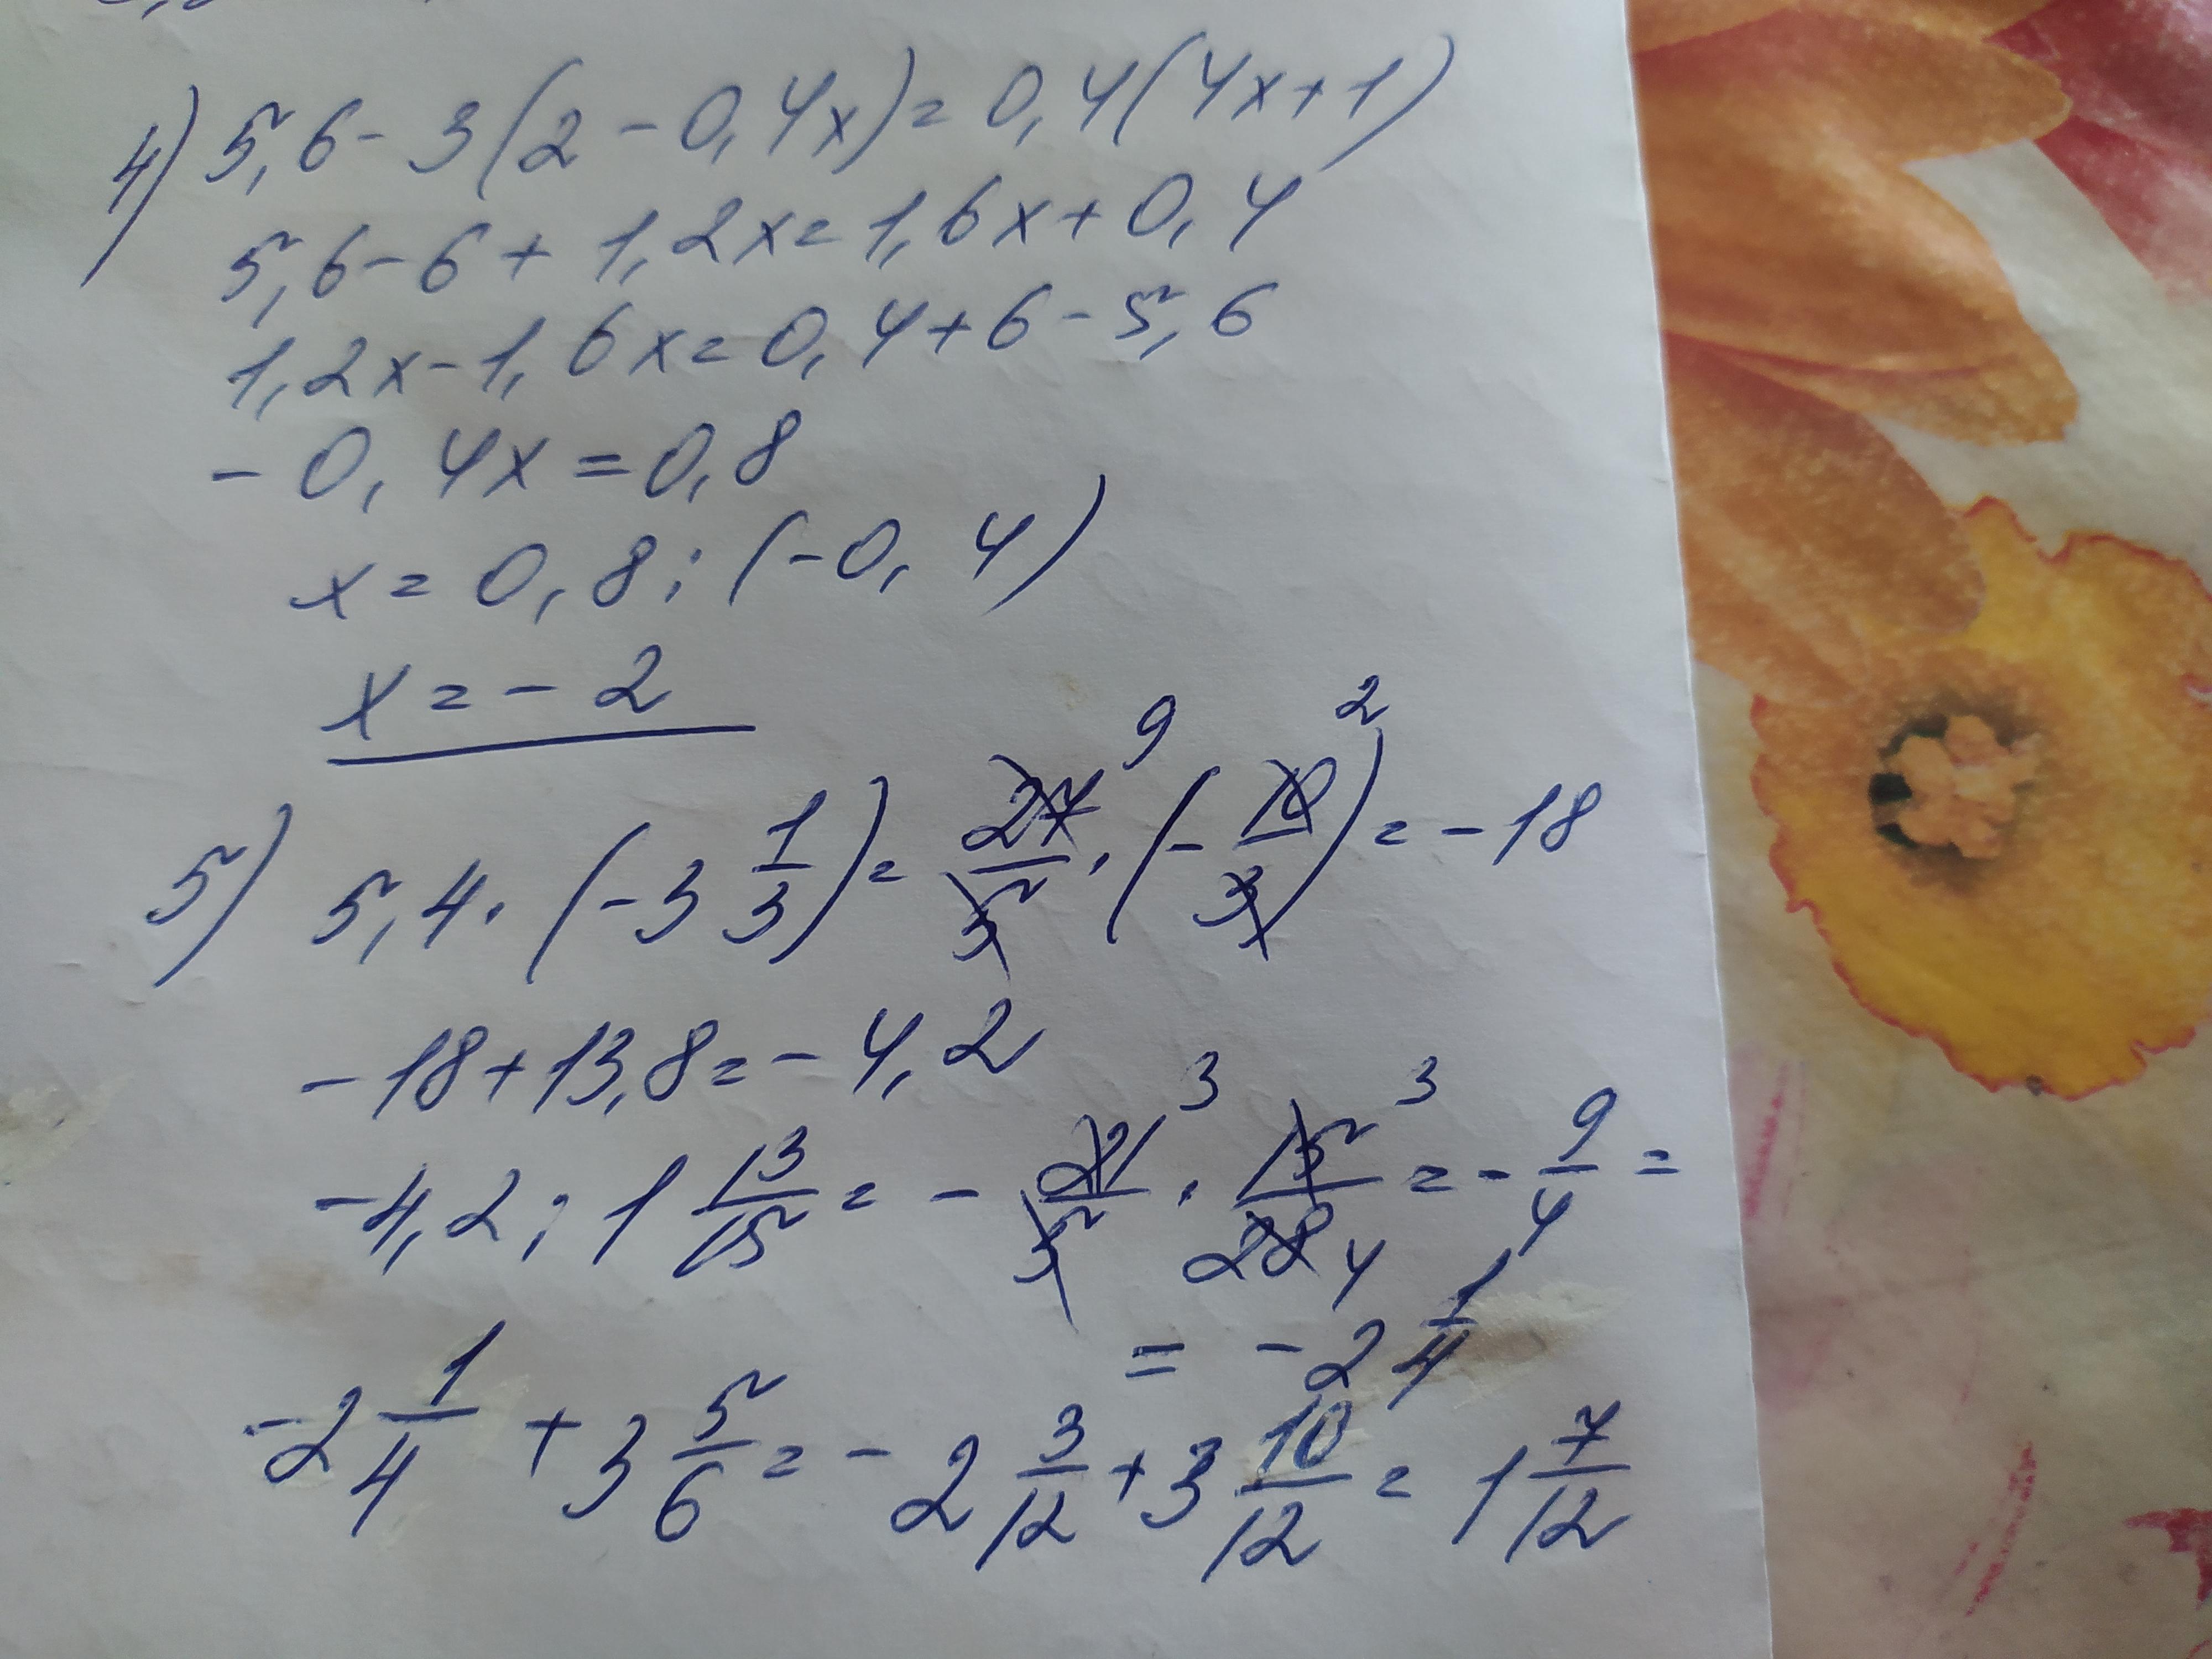 4) 5,6 - 3(2 - 0,4x) = 0,4(4x + 1)
5,6 - 6 + 1,2x = 1,6x + 0,4
1,2x - 1,6x = 0,4 + 6 - 5,6
- 0,4x = 0,8
x = 0,8 : (-0,4)
x = - 2
9 2
5) 5,4 · (-3 1/3) = 27/5 · (- 10/3) = - 18
- 18 + 13,8 = - 4,2
3 3
- 4,2 : 1 13/15 = - 21/5 · 15/28 = - 9/4 =
4
= - 2 1/4
- 2 1/4 + 3 5/6 = - 2 3/12 + 3 10/12 = 1 7/12